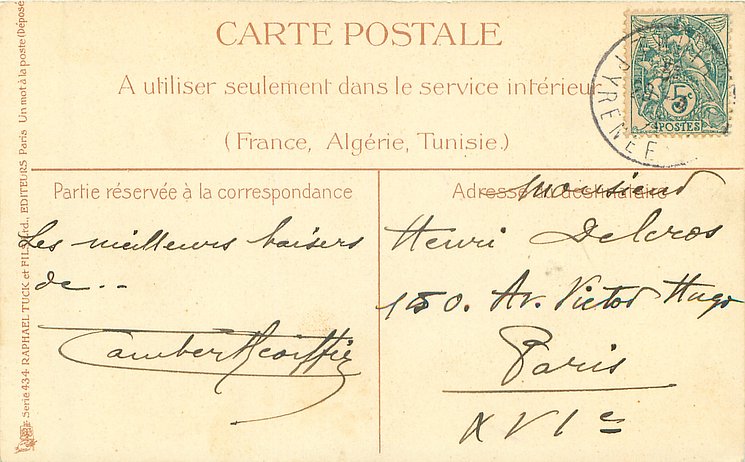 CARTE POSTALE
A utiliser seulement dans le service intérieur
(France, Algérie, Tunisie.)
Partie réservée à la correspondance
Les meilleurs baisers
de ..
Adresse du destinataire
Monsieur
Henri Delcros
150. Av. Victor Hugo
Paris
XVIe
5c
POSTES
PYRENEE
Serie 434 RAPHAEL TUCK et FILS Ltd., EDITEURS Paris Un mot à la poste (Déposé